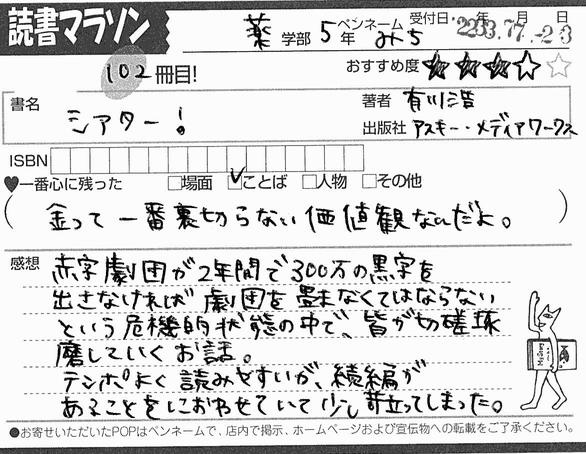 読書マラソン
薬学部 5年 ペンネーム みち 受付日 年 月 日
102冊目! おすすめ度 ★★★☆☆
書名 シアター! 著者 有川浩
出版社 アスキー・メディアワークス
ISBN
♥一番心に残った □場面 ☑ことば □人物 □その他
(金って一番裏切らない価値観なんだよ。)
感想 赤字劇団が2年間で300万の黒字を
出さなければ劇団を畳まなくてはならない
という危機的状態の中で、皆が切磋琢
磨していくお話。
テンポよく読みやすいが、続編が
あることをにおわせていて少し苛立ってしまった。
●お寄せいただいたPOPはペンネームで、店内で掲示、ホームページおよび宣伝物への転載をご了承ください。